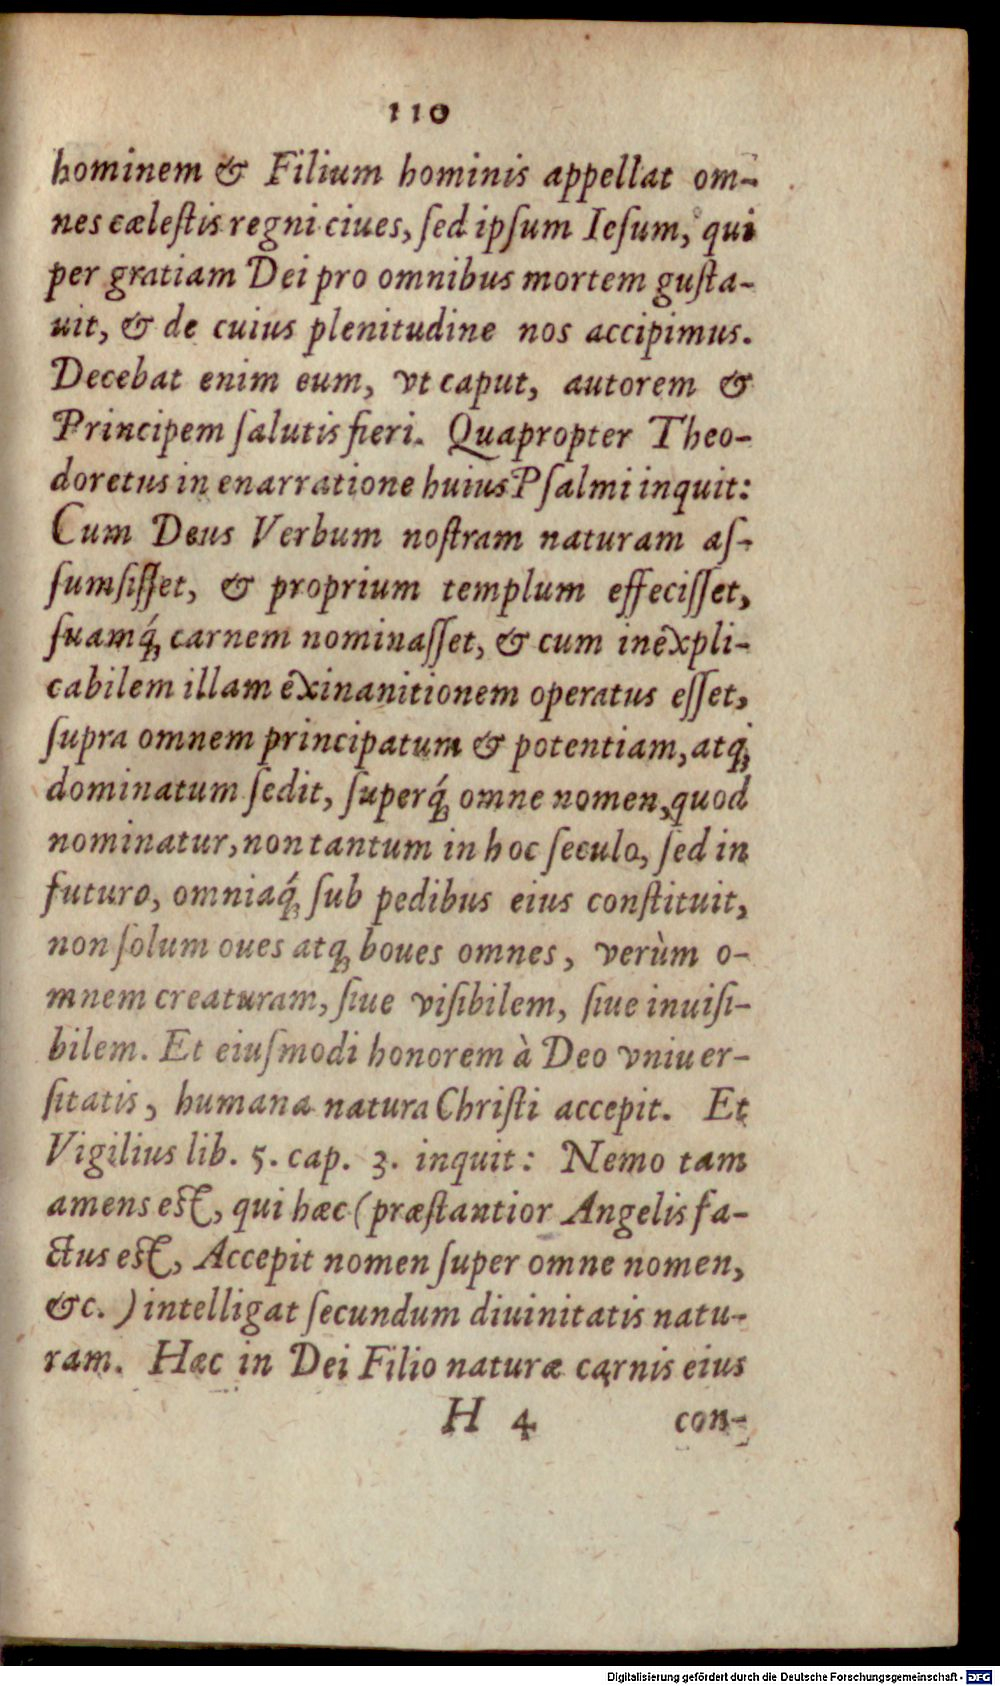 110
hominem & Filium hominis appellat om-
nes cælestis regni ciues, ſed ipſum Ieſum, qui
per gratiam Dei pro omnibus mortem guſta-
uit, & de cuius plenitudine nos accipimus.
Decebat enim eum, vt caput, autorem &
Principem ſalutis fieri. Quapropter Theo-
doretus in enarratione huius Pſalmi inquit:
Cum Deus Verbum noſtram naturam aſ-
ſumſiſſet, & proprium templum effeciſſet,
ſuamq́; carnem nominaſſet, & cum inexpli-
cabilem illam exinanitionem operatus eſſet,
ſupra omnem principatum & potentiam, atq;
dominatum ſedit, ſuperq́; omne nomen, quod
nominatur, non tantum in hoc ſeculo, ſed in
futuro, omniaq́; ſub pedibus eius conſtituit,
non ſolum oues atq; boues omnes, verùm o-
mnem creaturam, ſiue viſibilem, ſiue inuiſi-
bilem. Et eiuſmodi honorem à Deo vniuer-
ſitatis, humana natura Chriſti accepit. Et
Vigilius lib. 5. cap. 3. inquit: Nemo tam
amens eſt, qui hæc (præſtantior Angelis fa-
ctus eſt, Accepit nomen ſuper omne nomen,
&c.) intelligat ſecundum diuinitatis natu-
ram. Hæc in Dei Filio naturæ carnis eius
H 4 con-
Digitalisierung gefördert durch die Deutsche Forschungsgemeinschaft - DFG